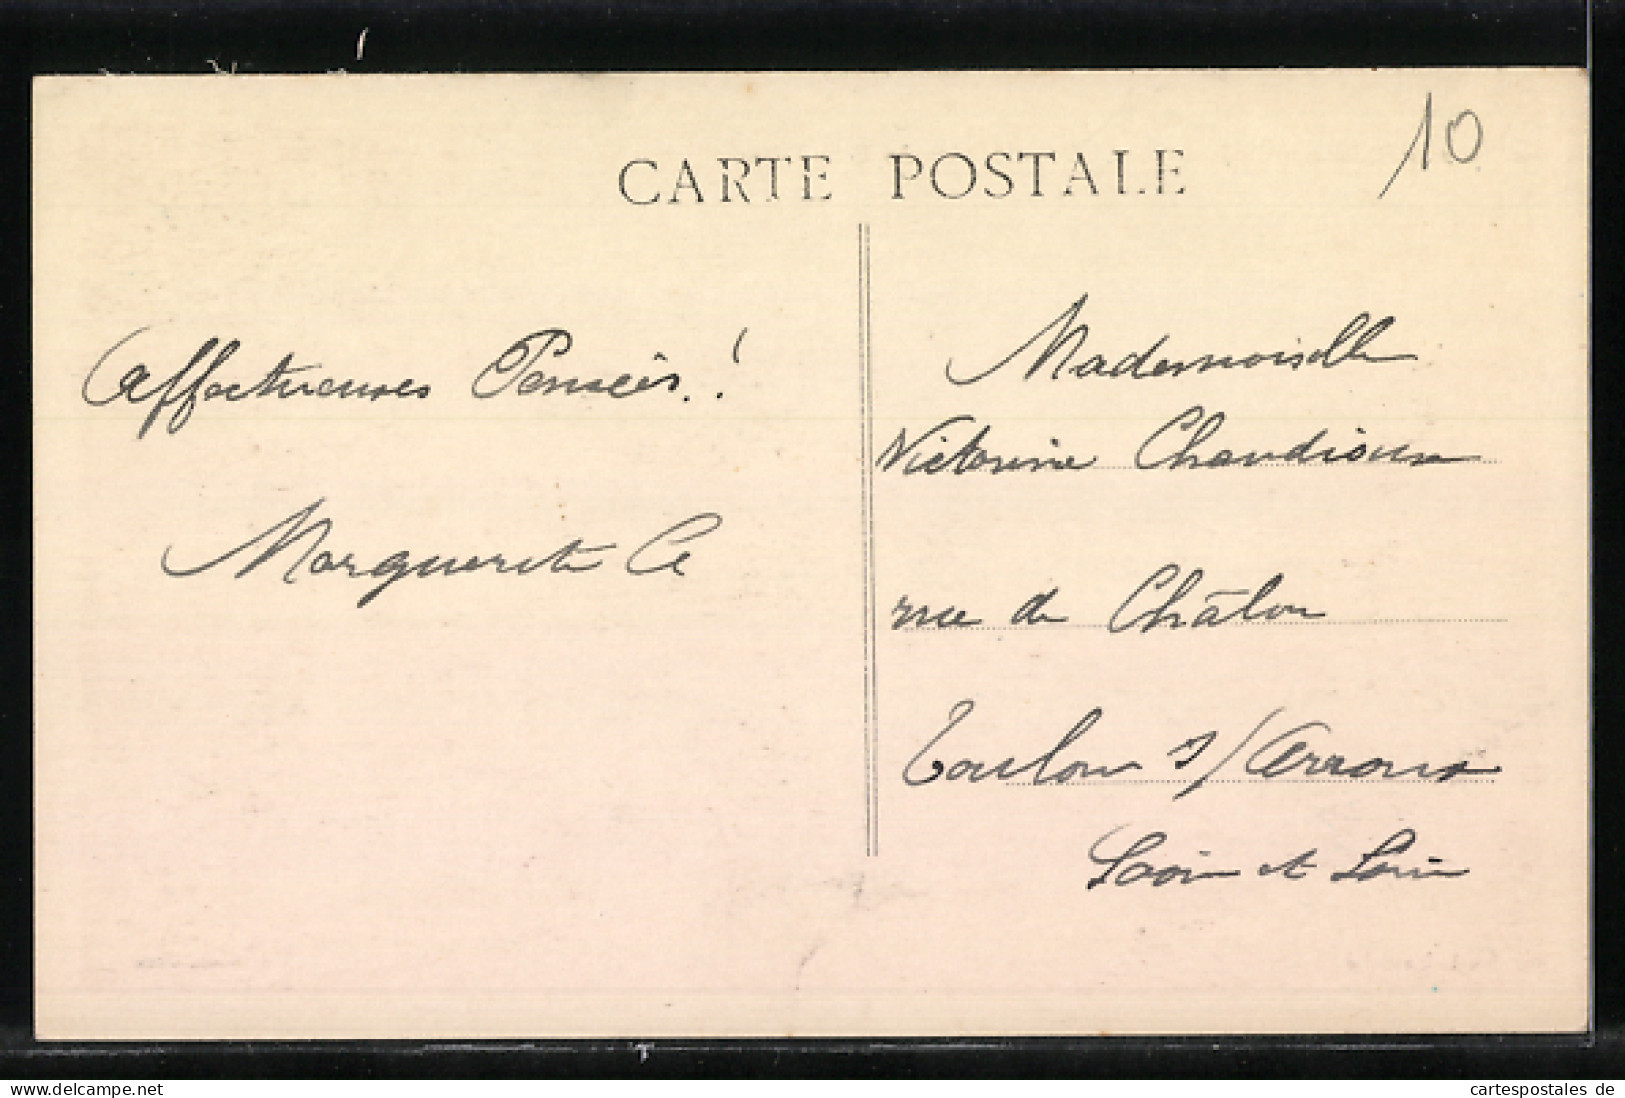 CARTE POSTALE
10
Affectueuses Pensées !
Marguerite C
Mademoiselle
Victorine Chandioux
rue de Châlon
Toulon s/ Arroux
Saône et Loire
delcampe.net
cartespostales de